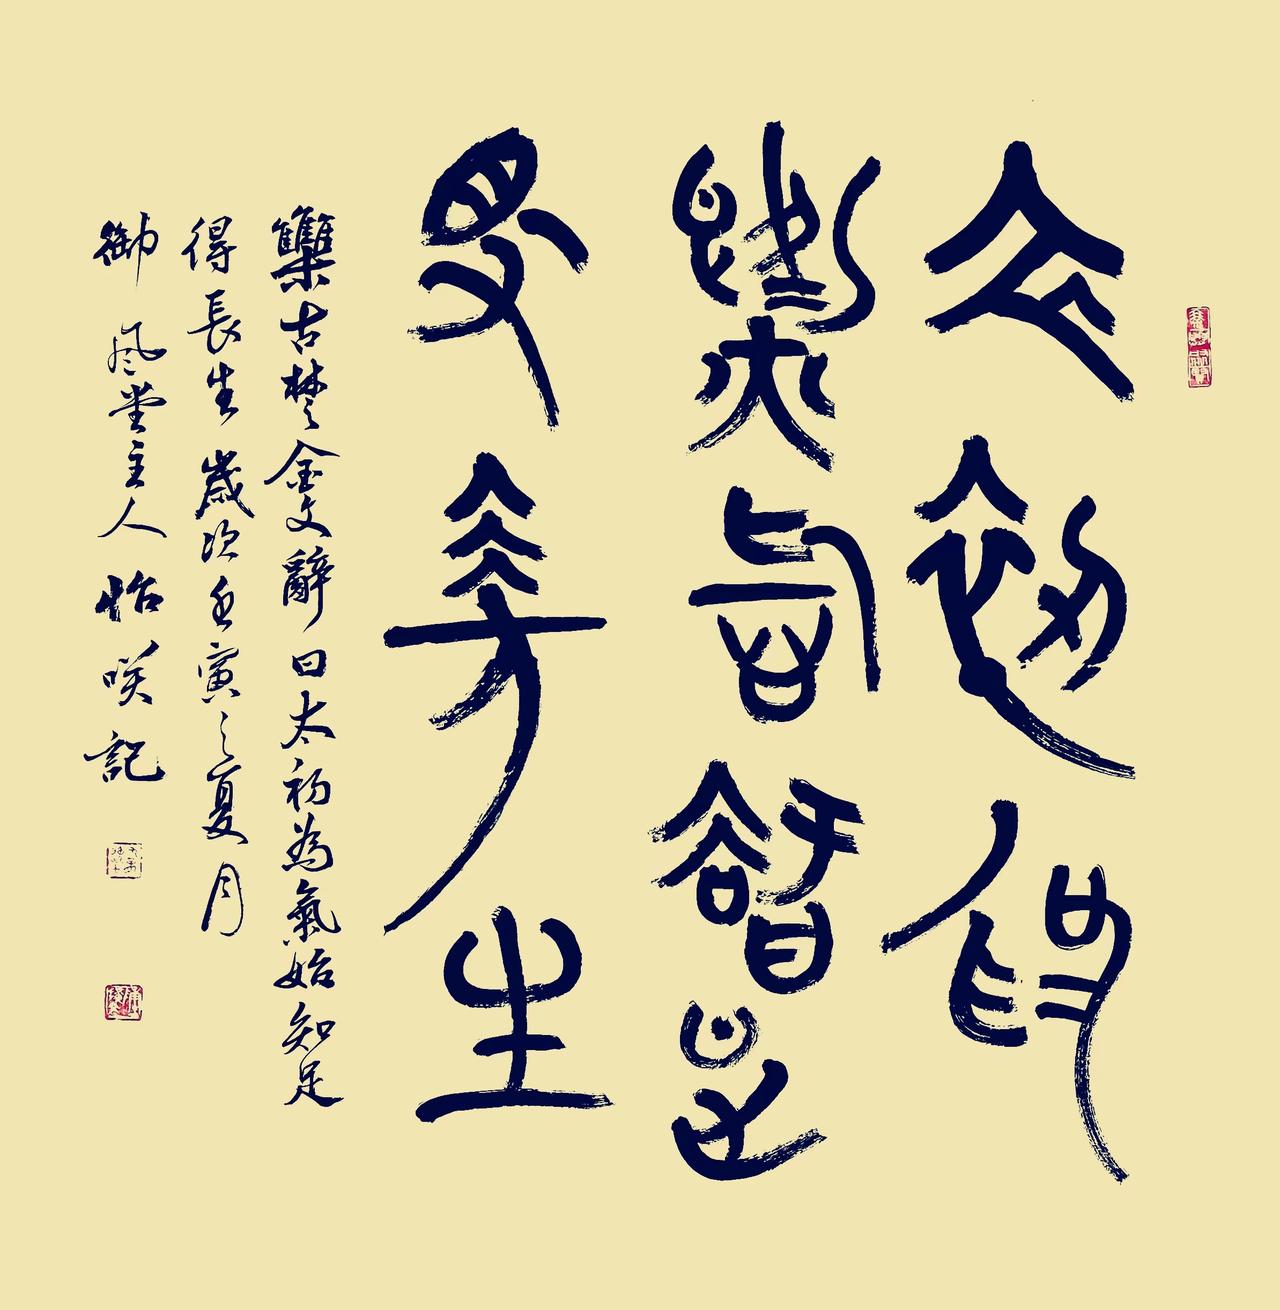 太初為
氣始智足
得長生
雧古楚金文辭曰太初為氣始知足
得長生歲次壬寅之夏月
御風堂主人怡咲記